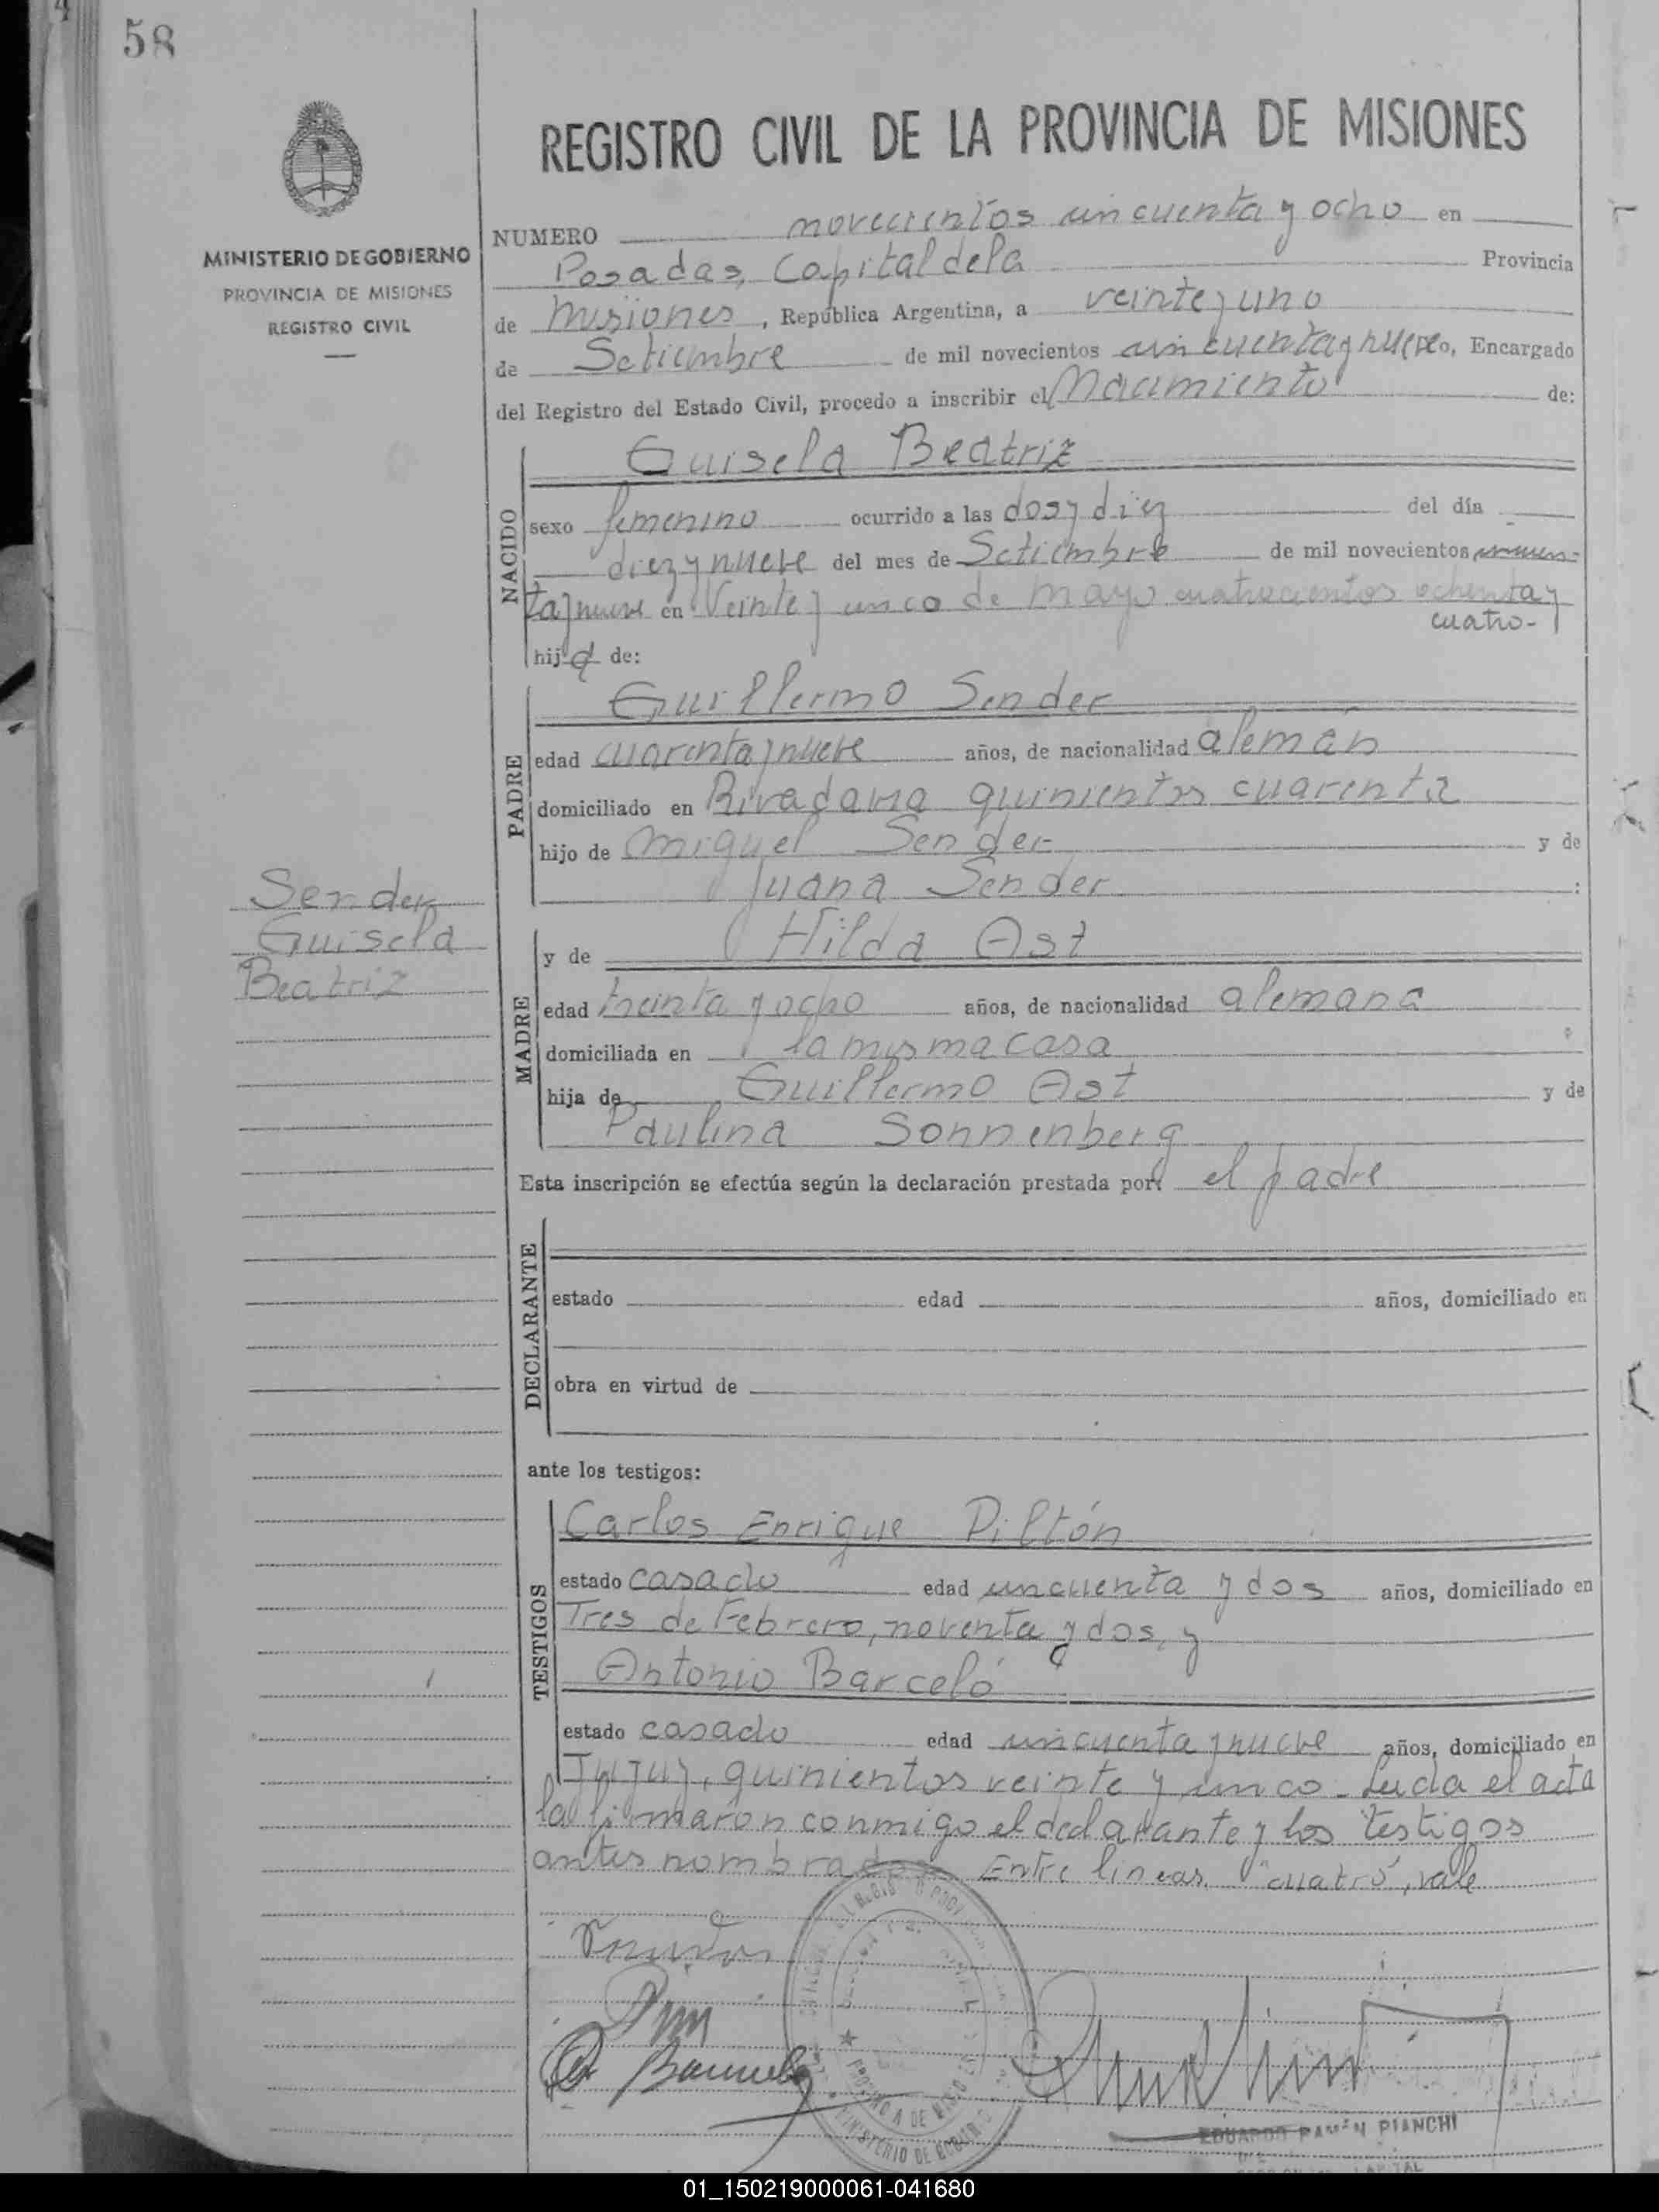 58
REGISTRO CIVIL DE LA PROVINCIA DE MISIONES
MINISTERIO DE GOBIERNO
PROVINCIA DE MISIONES
REGISTRO CIVIL
NUMERO novecientos cincuenta y ocho en
Posadas, Capital de la Provincia
de Misiones, República Argentina, a veinte y uno
de Setiembre de mil novecientos cincuenta y nueve, Encargado
del Registro del Estado Civil, procedo a inscribir el Nacimiento de:
NACIDO
Guisela Beatriz
sexo femenino ocurrido a las dos y diez del día
diez y nueve del mes de Setiembre de mil novecientos cincuen-
ta y nueve en Veinte y cinco de Mayo cuatrocientos ochenta y
cuatro-
hija de:
PADRE
Guillermo Sender
edad cuarenta y nueve años, de nacionalidad alemán
domiciliado en Rivadavia quinientos cuarenta
hijo de Miguel Sender y de
Juana Sender :
Sender
Guisela
Beatriz
MADRE
y de Hilda Ast
edad treinta y ocho años, de nacionalidad alemana
domiciliada en la misma casa
hija de Guillermo Ast y de
Paulina Sonnenberg
Esta inscripción se efectúa según la declaración prestada por: el padre
DECLARANTE
estado edad años, domiciliado en
obra en virtud de
ante los testigos:
TESTIGOS
Carlos Enrique Piltón
estado casado edad cincuenta y dos años, domiciliado en
Tres de Febrero, noventa y dos, y
Antonio Barceló
estado casado edad cincuenta y nueve años, domiciliado en
Jujuy, quinientos veinte y cinco. Leida el acta
la firmaron conmigo el declarante y los testigos
antes nombrados. Entre lineas, "cuatro", vale
PROVINCIA DE MISIONES
MINISTERIO DE GOBIERNO
EDUARDO RAMÓN PIANCHI
01_150219000061-041680